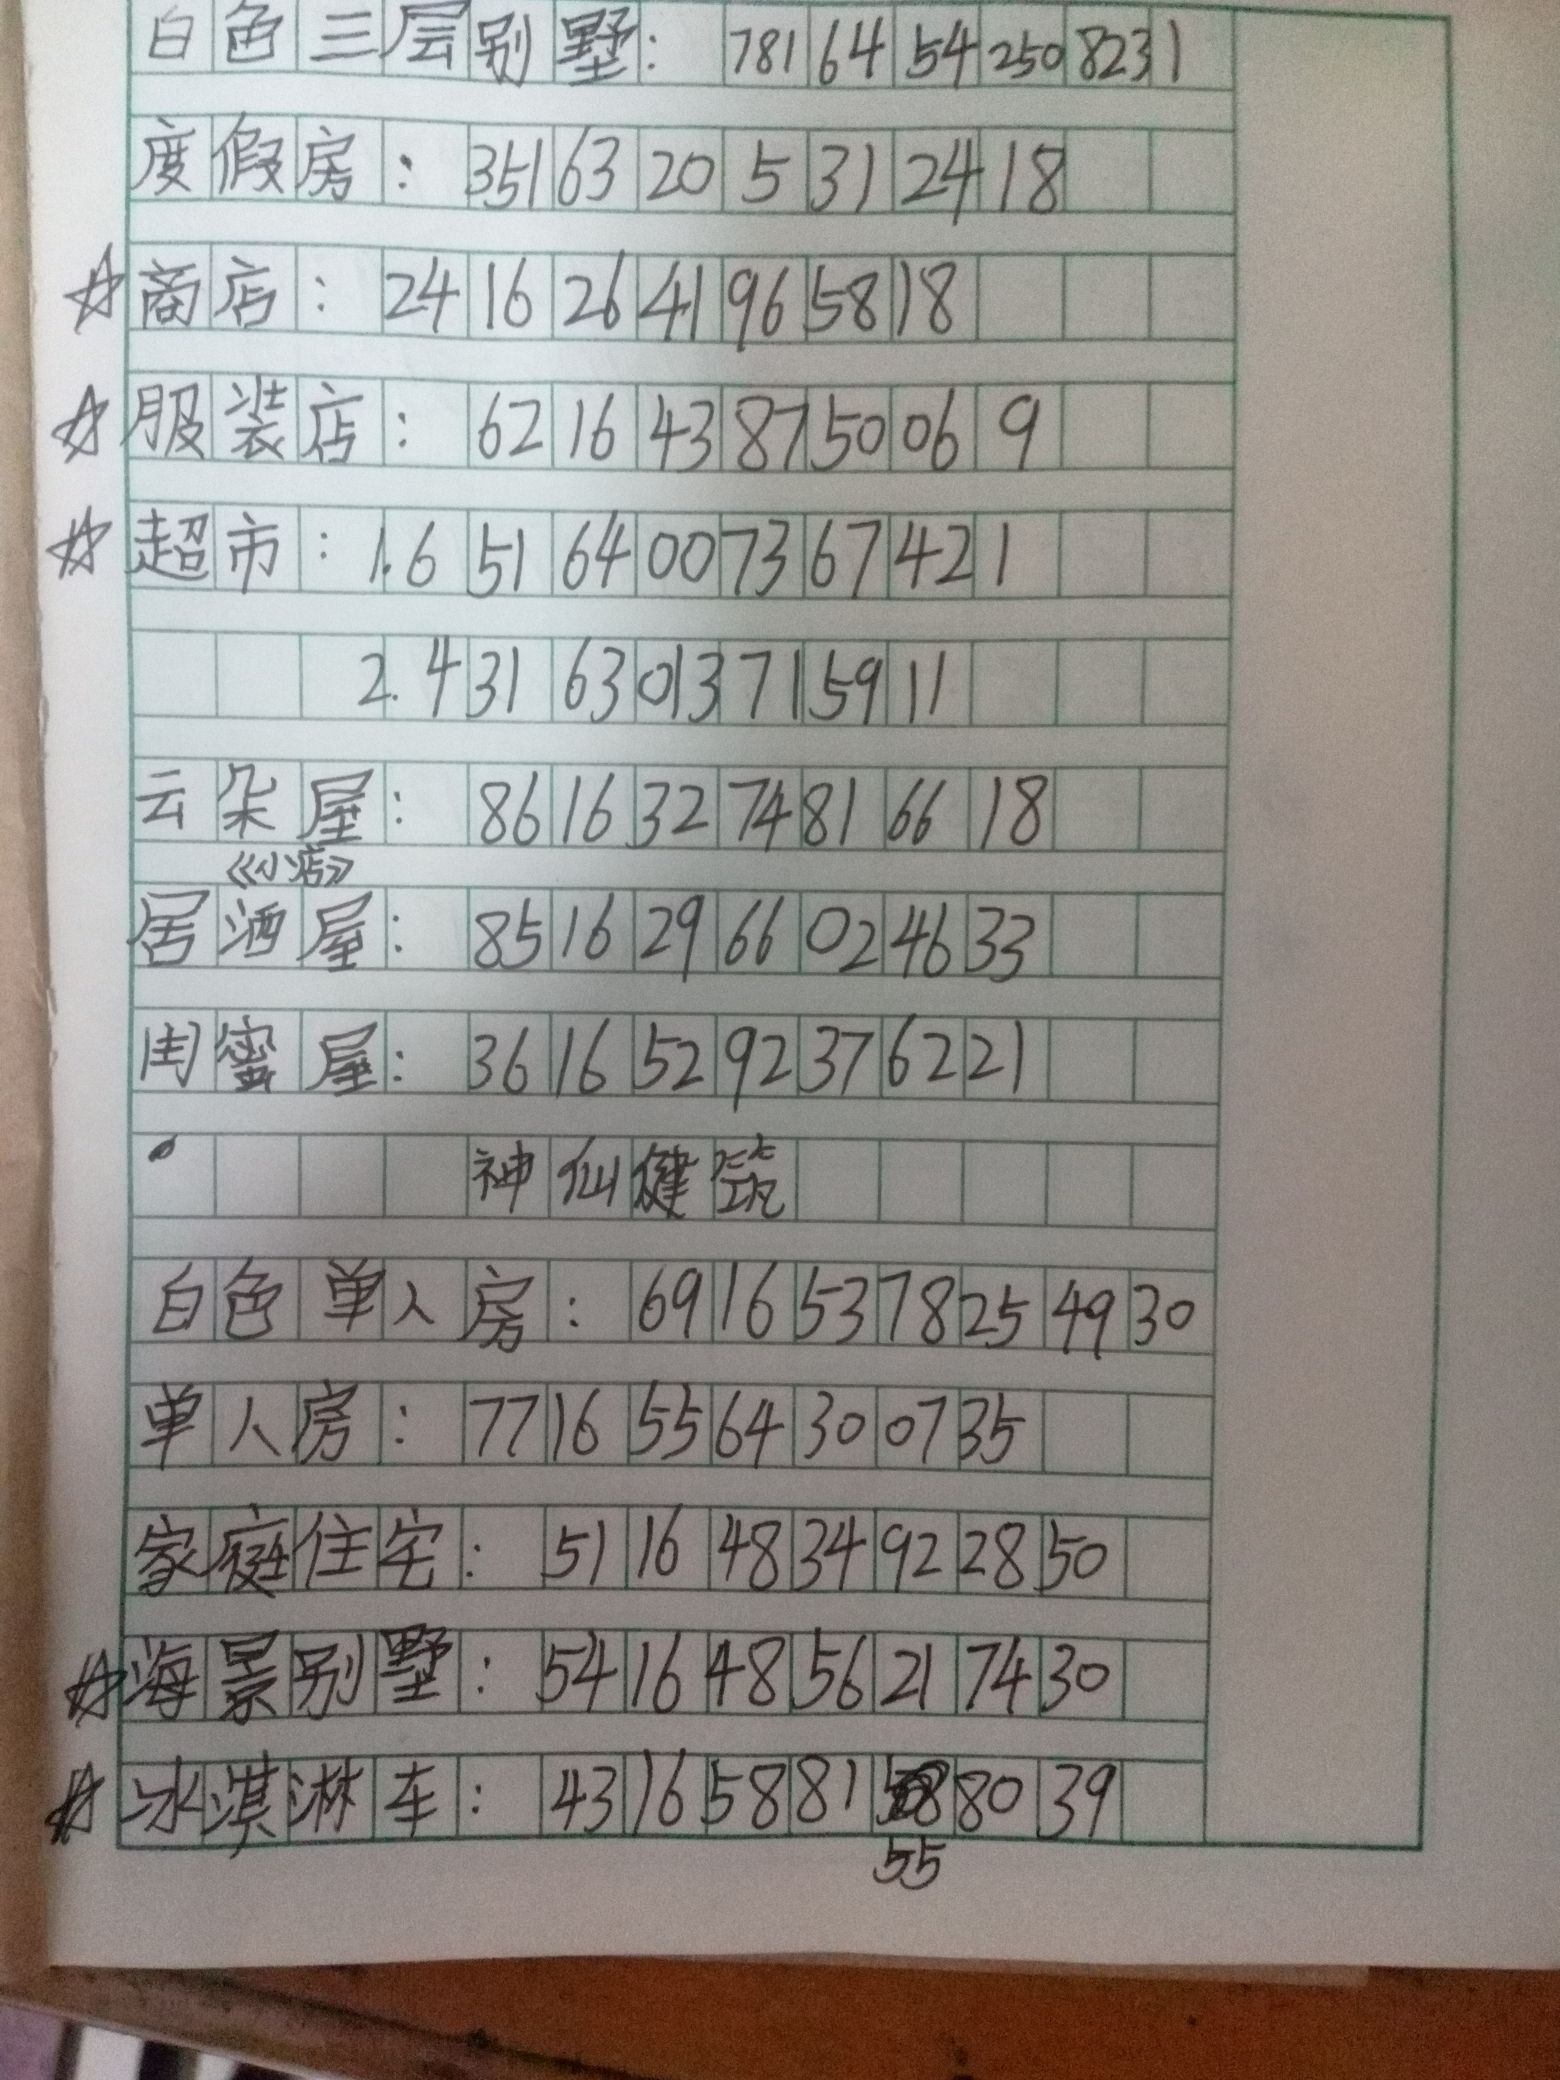 白色三层别墅: 781 64 54 250 8231
度假房: 351 63 20 5 31 24 18
☆商店: 24 16 26 41 96 58 18
☆服装店: 62 16 43 87 50 06 9
☆超市: 1.6 51 64 00 73 67 42 1
2.4 31 63 013 71 59 11
云朵屋: 86 16 32 74 81 66 18
《小店》
居酒屋: 85 16 29 66 02 46 33
闺蜜屋: 36 16 52 92 37 62 21
神仙健筑
白色单人房: 69 16 53 78 25 49 30
单人房: 77 16 55 64 30 07 35
家庭住宅: 51 16 48 34 92 28 50
☆海景别墅: 54 16 48 56 21 74 30
☆冰淇淋车: 43 16 58 81 80 39
55